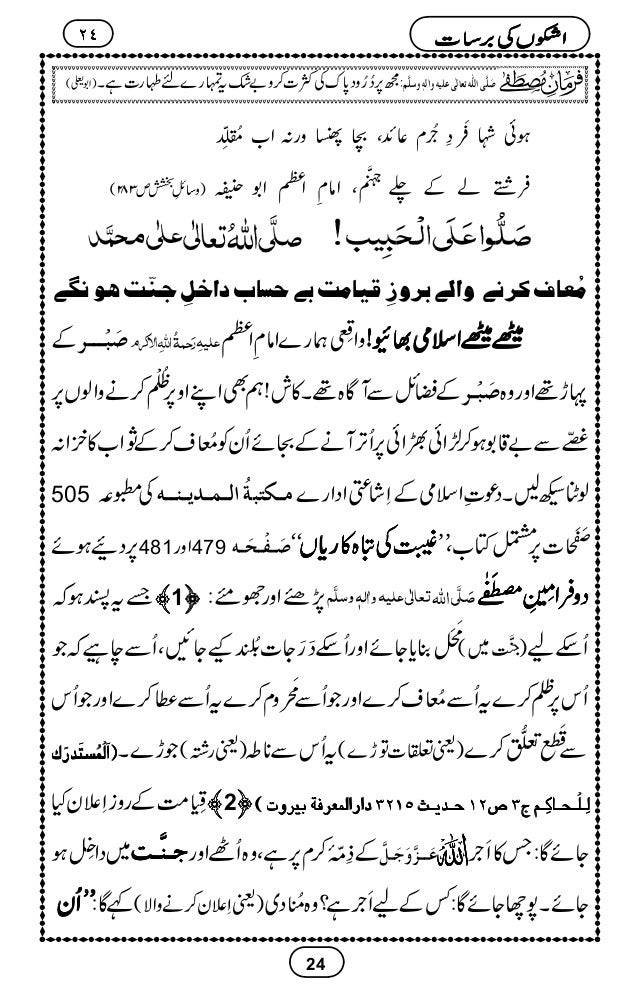 اشکوں کی برسات
۲٤
فرمانِ مصطفٰے صلَّی اللہ تعالٰی علیہ والہٖ وسلَّم: مجھ پر دُرُود پاک کی کثرت کرو بے شک یہ تمہارے لئے طہارت ہے۔ (ابویعلی)
ہوئی شہا فَردِ جُرم عائد، بچا پھنسا ورنہ اب مُقلِّد
فِرشتے لے کے چلے جہنَّم، امامِ اعظم ابو حنیفہ (وسائلِ بخشش ص۲۸۳)
صَلُّوا عَلَی الْحَبِیب! صلَّی اللہُ تعالٰی علٰی محمَّد
مُعاف کرنے والے بروزِ قیامت بے حساب داخلِ جنّت ہونگے
میٹھے میٹھے اسلامی بھائیو! واقِعی ہمارے امامِ اعظم علیہِ رَحمۃُ اللہِ الاکرم صَبْر کے
پہاڑ تھے اور وہ صَبْر کے فضائل سے آگاہ تھے۔ کاش! ہم بھی اپنے اوپر ظُلْم کرنے والوں پر
غصّے سے بے قابو ہو کر لڑائی بھڑائی پر اُتر آنے کے بجائے اُن کو مُعاف کر کے ثواب کا خزانہ
لوٹنا سیکھ لیں۔ دعوتِ اسلامی کے اِشاعَتی ادارے مکتبۃُ المدینہ کی مطبوعہ 505
صَفَحات پر مشتمل کتاب، ’’غیبت کی تباہ کاریاں‘‘ صَفْحَہ 479 اور 481 پر دیئے ہوئے
دو فرامینِ مصطَفٰے صلَّی اللہ تعالٰی علیہ والہٖ وسلَّم پڑھئے اور جھومئے: ﴿1﴾ جسے یہ پسند ہو کہ
اُسکے لیے (جنّت میں) مَحَل بنایا جائے اور اُسکے دَرَجات بُلند کیے جائیں، اُسے چاہیے کہ جو
اُس پر ظلم کرے یہ اُسے مُعاف کرے اور جو اُسے مَحروم کرے یہ اُسے عطا کرے اور جو اُس
سے قَطعِ تعلُّق کرے (یعنی تعلقات توڑے) یہ اُس سے ناطہ (یعنی رشتہ) جوڑے۔ (اَلْمُستَدرَک
لِلْحاکِم ج۳ ص۱۲ حدیث ۳۲۱۵ دارالمعرفۃ بیروت) ﴿2﴾ قِیامت کے روز اِعلان کیا
جائے گا: جس کا اَجر اللہ عَزَّوَجَلَّ کے ذِمّۂ کرم پر ہے، وہ اُٹھے اور جنَّت میں داخِل ہو
جائے۔ پوچھا جائے گا: کس کے لیے اَجر ہے؟ وہ مُنادی (یعنی اِعلان کرنے والا) کہے گا: ’’اُن
24